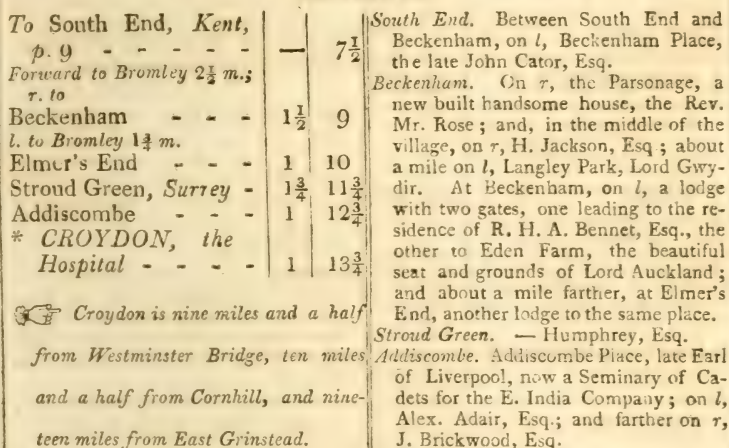 To South End, Kent,
p. 9 - - - - - — 7½
Forward to Bromley 2½ m.;
r. to
Beckenham - - - 1½ 9
l. to Bromley 1¾ m.
Elmer's End - - - 1 10
Stroud Green, Surrey - 1¾ 11¾
Addiscombe - - - 1 12¾
* CROYDON, the
Hospital - - - 1 13¾
☞ Croydon is nine miles and a half
from Westminster Bridge, ten miles
and a half from Cornhill, and nine-
teen miles from East Grinstead.
South End. Between South End and
Beckenham, on l, Beckenham Place,
the late John Cator, Esq.
Beckenham. On r, the Parsonage, a
new built handsome house, the Rev.
Mr. Rose; and, in the middle of the
village, on r, H. Jackson, Esq; about
a mile on l, Langley Park, Lord Gwy-
dir. At Beckenham, on l, a lodge
with two gates, one leading to the re-
sidence of R. H. A. Bennet, Esq., the
other to Eden Farm, the beautiful
seat and grounds of Lord Auckland;
and about a mile farther, at Elmer's
End, another lodge to the same place.
Stroud Green. — Humphrey, Esq.
Addiscombe. Addiscombe Place, late Earl
of Liverpool, now a Seminary of Ca-
dets for the E. India Company; on l,
Alex. Adair, Esq.; and farther on r,
J. Brickwood, Esq.